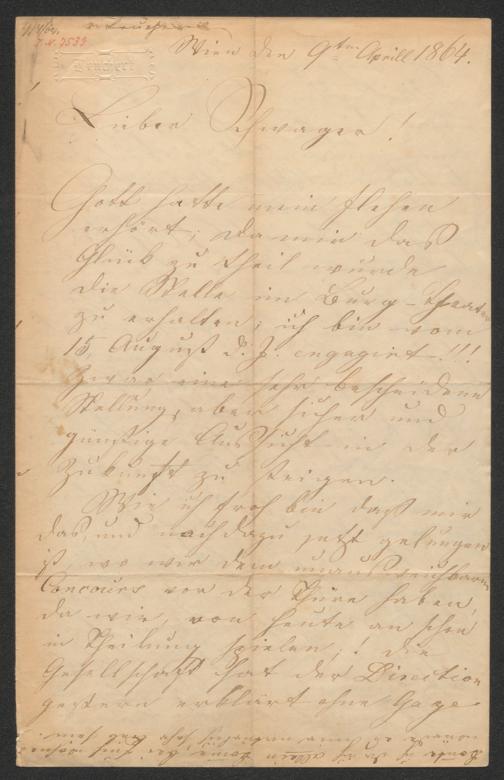 I.N. 7533
Wien den 9ten Aprill 1864.
Lieber Schwager!
Gott hatte mein flehen
erhört; da mir das
Glück zu theil wurde
die Stelle im Burg-Theater
zu erhalten; ich bin vom
15 August d. J. engagirt!!!
Zwar eine sehr bescheidene
Stellung, aber sicher und
günstige Aussicht in der
Zukunft zu steigen.
Wie ich froh bin daß mir
das, und noch dazu jetzt gelungen
ist, wo wir dem unausweichbaren
Concours vor der Thüre haben,
da wir, von heute an schon
in Theilung spielen;! die
Gesellschaft hat der Direction
gestern erklärt ohne Gage